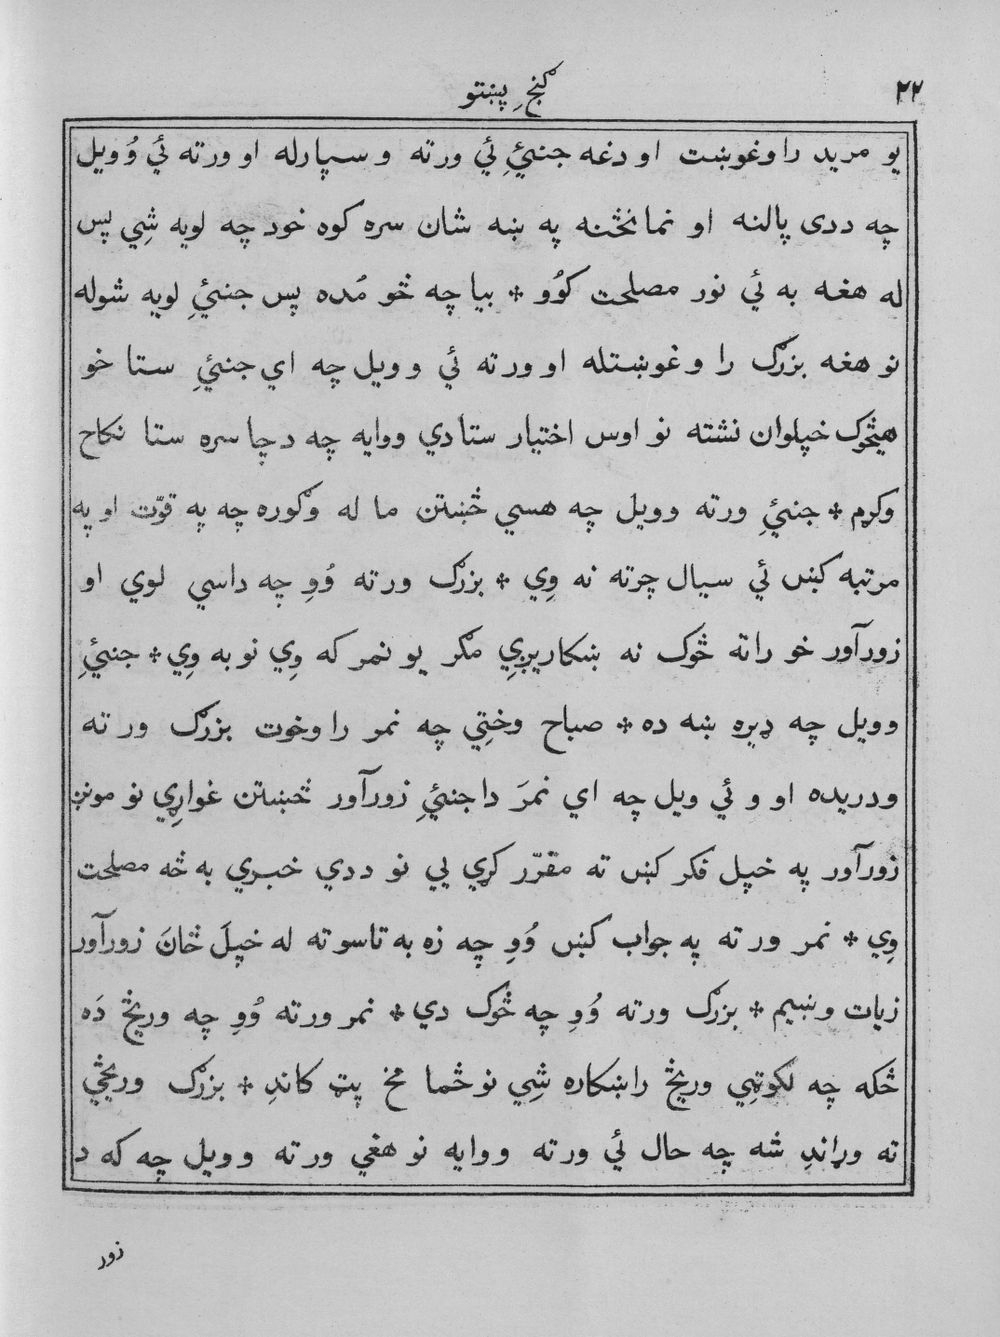 ۲۲
گنجِ پښتو
یو مرید راوغوښت او دغه جنیِٔ ئي ورته وسپارله او ورته ئي وُویل
چه ددی پالنه او نمانځنه په ښه شان سره کوه خود چه لویه شِي پس
له هغه به ئي نور مصلحت کوُو * بیا چه څو مُده پس جنیِٔ لویه شوله
نو هغه بزرګ را وغوښتله او ورته ئي وویل چه اي جنیِٔ ستا خو
هیڅوک خپلوان نشته نو اوس اختیار ستا دي ووایه چه د چا سره ستا نکاح
وکړم * جنیِٔ ورته وویل چه هسي څښتن ما له وګوره چه په قوّت او په
مرتبه کښ ئي سیال چرته نه وِي * بزرګ ورته وُوِ چه داسي لوي او
زورآور خو راته څوک نه ښکاریږِي مګر یو نمر که وِي نو به وِي * جنیِٔ
وویل چه ډیره ښه ده * صباح وختِي چه نمر راوخوت بزرګ ورته
ودریده او و ئي ویل چه اي نمرَ دا جنیِٔ زورآور څښتن غواړِي نو مونږ
زورآور په خپل فکر کښ ته مقرّر کړي یي نو ددي خبري به څه مصلحت
وِي * نمر ورته په جواب کښ وُوِ چه زه به تاسو ته له خپلَ ځانَ زورآور
زیات وښیم * بزرګ ورته وُوِ چه څوک دي * نمر ورته وُوِ چه وریځ دَه
ځکه چه لکوټِي وریځ راښکاره شِي نو ځما مخ پټ کاندِ * بزرګ وریځي
ته وړاندِ شه چه حال ئي ورته ووایه نو هغي ورته وویل چه که د
زور